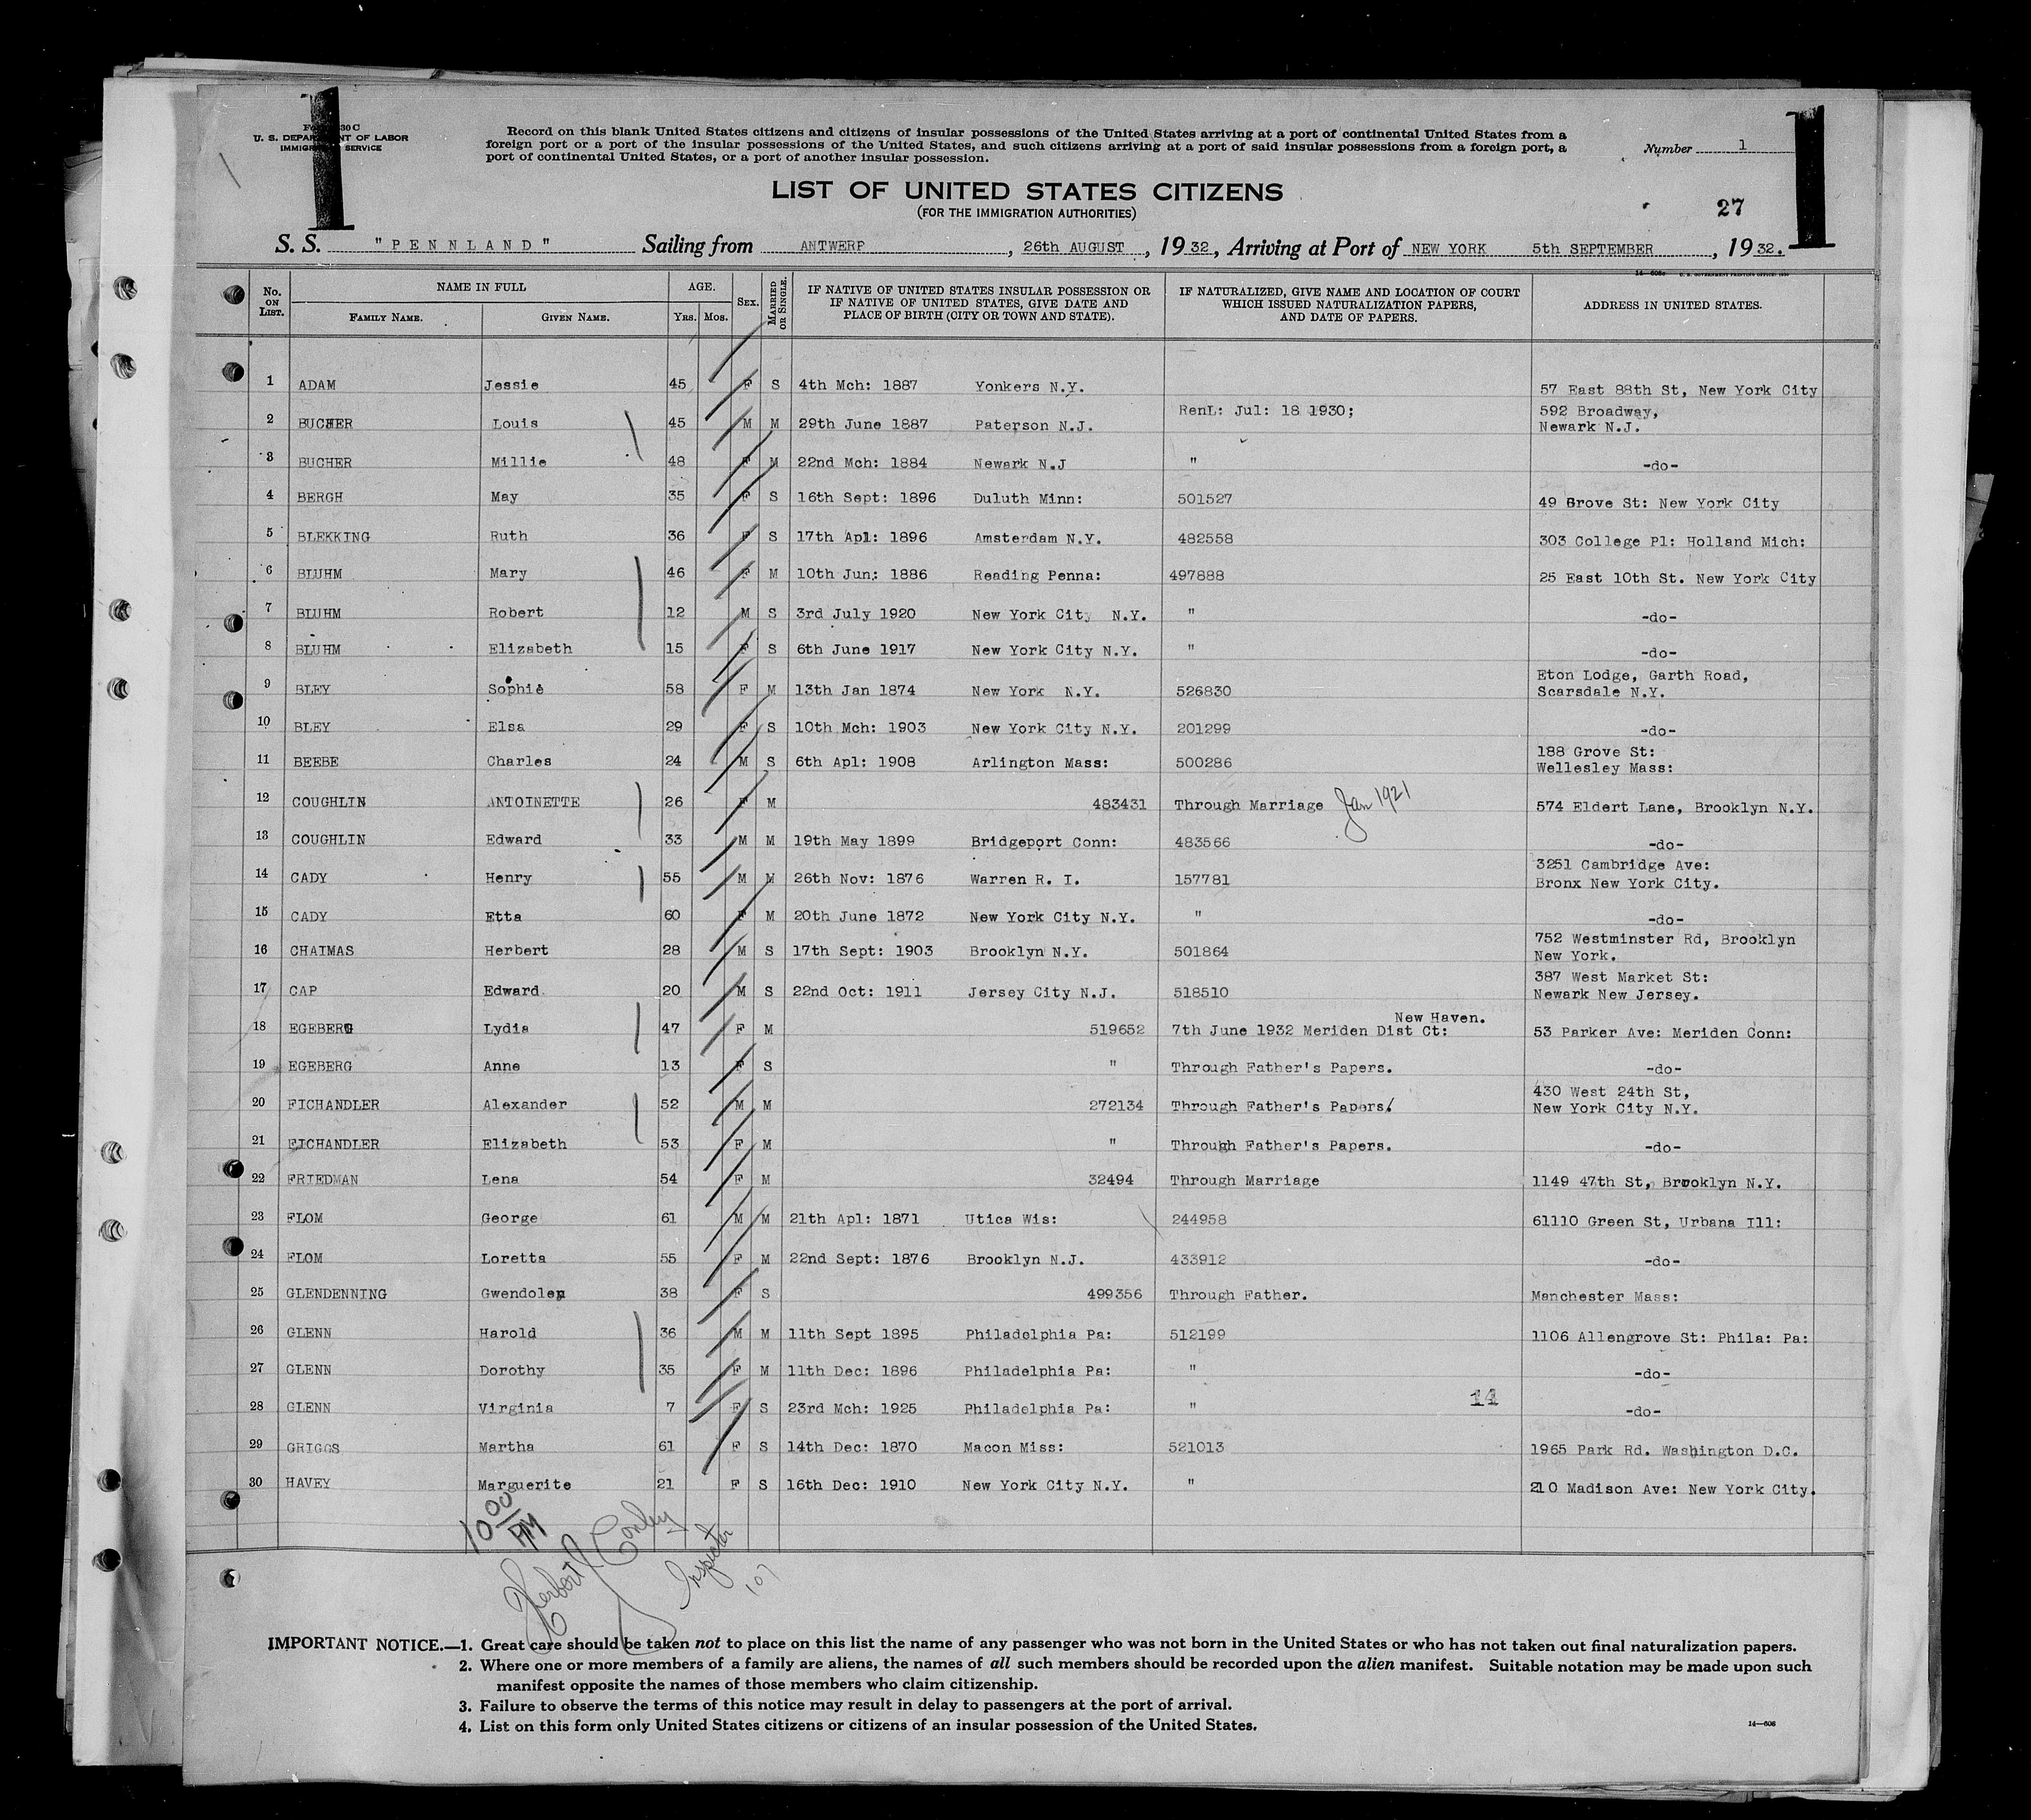 1 1
Form 630 C
U. S. DEPARTMENT OF LABOR
IMMIGRATION SERVICE
Record on this blank United States citizens and citizens of insular possessions of the United States arriving at a port of continental United States from a
foreign port or a port of the insular possessions of the United States, and such citizens arriving at a port of said insular possessions from a foreign port, a
port of continental United States, or a port of another insular possession.
Number 1
LIST OF UNITED STATES CITIZENS
(FOR THE IMMIGRATION AUTHORITIES)
27
S. S. "PENNLAND" Sailing from ANTWERP, 26th AUGUST, 1932, Arriving at Port of NEW YORK 5th SEPTEMBER, 1932.
14—606a U. S. GOVERNMENT PRINTING OFFICE
No. ON LIST. NAME IN FULL FAMILY NAME. GIVEN NAME. AGE. YRS. MOS. SEX. MARRIED OR SINGLE. IF NATIVE OF UNITED STATES INSULAR POSSESSION OR IF NATIVE OF UNITED STATES, GIVE DATE AND PLACE OF BIRTH (CITY OR TOWN AND STATE). IF NATURALIZED, GIVE NAME AND LOCATION OF COURT WHICH ISSUED NATURALIZATION PAPERS, AND DATE OF PAPERS. ADDRESS IN UNITED STATES.
1 ADAM Jessie 45 F S 4th Mch: 1887 Yonkers N.Y. 57 East 88th St, New York City
2 BUCHER Louis 45 M M 29th June 1887 Paterson N.J. RenL: Jul: 18 1930; 592 Broadway, Newark N.J.
3 BUCHER Millie 48 F M 22nd Mch: 1884 Newark N.J " -do-
4 BERGH May 35 F S 16th Sept: 1896 Duluth Minn: 501527 49 Grove St: New York City
5 BLEKKING Ruth 36 F S 17th Apl: 1896 Amsterdam N.Y. 482558 303 College Pl: Holland Mich:
6 BLUHM Mary 46 F M 10th Jun: 1886 Reading Penna: 497888 25 East 10th St. New York City
7 BLUHM Robert 12 M S 3rd July 1920 New York City N.Y. " -do-
8 BLUHM Elizabeth 15 F S 6th June 1917 New York City N.Y. " -do-
9 BLEY Sophie 58 F M 13th Jan 1874 New York N.Y. 526830 Eton Lodge, Garth Road, Scarsdale N.Y.
10 BLEY Elsa 29 F S 10th Mch: 1903 New York City N.Y. 201299 -do-
11 BEEBE Charles 24 M S 6th Apl: 1908 Arlington Mass: 500286 188 Grove St: Wellesley Mass:
12 COUGHLIN ANTOINETTE 26 F M 483431 Through Marriage Jan 1921 574 Eldert Lane, Brooklyn N.Y.
13 COUGHLIN Edward 33 M M 19th May 1899 Bridgeport Conn: 483566 -do-
14 CADY Henry 55 M M 26th Nov: 1876 Warren R. I. 157781 3251 Cambridge Ave: Bronx New York City.
15 CADY Etta 60 F M 20th June 1872 New York City N.Y. " -do-
16 CHAIMAS Herbert 28 M S 17th Sept: 1903 Brooklyn N.Y. 501864 752 Westminster Rd, Brooklyn New York.
17 CAP Edward 20 M S 22nd Oct: 1911 Jersey City N.J. 518510 387 West Market St: Newark New Jersey.
18 EGEBERG Lydia 47 F M 519652 7th June 1932 Meriden Dist Ct: New Haven. 53 Parker Ave: Meriden Conn:
19 EGEBERG Anne 13 F S " Through Father's Papers. -do-
20 FICHANDLER Alexander 52 M M 272134 Through Father's Papers. 430 West 24th St, New York City N.Y.
21 FICHANDLER Elizabeth 53 F M " Through Father's Papers. -do-
22 FRIEDMAN Lena 54 F M 32494 Through Marriage 1149 47th St, Brooklyn N.Y.
23 FLOM George 61 M M 21th Apl: 1871 Utica Wis: 244958 61110 Green St, Urbana Ill:
24 FLOM Loretta 55 F M 22nd Sept: 1876 Brooklyn N.J. 433912 -do-
25 GLENDENNING Gwendolen 38 F S 499356 Through Father. Manchester Mass:
26 GLENN Harold 36 M M 11th Sept 1895 Philadelphia Pa: 512199 1106 Allengrove St: Phila: Pa:
27 GLENN Dorothy 35 F M 11th Dec: 1896 Philadelphia Pa: " -do-
28 GLENN Virginia 7 F S 23rd Mch: 1925 Philadelphia Pa: " 14 -do-
29 GRIGGS Martha 61 F S 14th Dec: 1870 Macon Miss: 521013 1965 Park Rd. Washington D.C.
30 HAVEY Marguerite 21 F S 16th Dec: 1910 New York City N.Y. " 210 Madison Ave: New York City.
10 00 PM
Herbert J Conley
Inspector
107
IMPORTANT NOTICE.—1. Great care should be taken not to place on this list the name of any passenger who was not born in the United States or who has not taken out final naturalization papers.
2. Where one or more members of a family are aliens, the names of all such members should be recorded upon the alien manifest. Suitable notation may be made upon such
manifest opposite the names of those members who claim citizenship.
3. Failure to observe the terms of this notice may result in delay to passengers at the port of arrival.
4. List on this form only United States citizens or citizens of an insular possession of the United States.
14—606